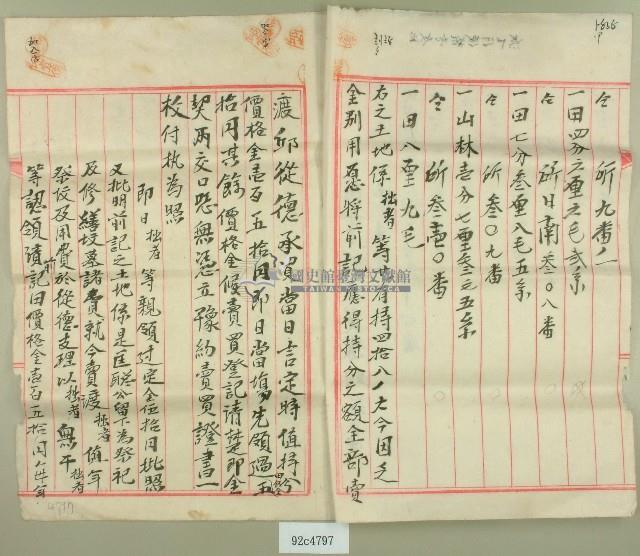 仝 所九番ノ一
一田四分六厘六毛貳糸
仝 所日南叁〇八番
一田七分叁厘八毛五糸
仝 所叁〇九番
一山林壱分七厘叁毛五糸
仝 所叁壱〇番
一田八厘九毛
右之土地係拙者等 有持四拾八ノ六今因乏
金別用愿將前記應得持分之額全部賣
渡邱從德承買當日言定時值持分
價格金壱百五拾円即日當塲先領過五
拾円其餘價格金候賣買登記清楚即金
契兩交口恐無憑立豫約賣買證書一
枚付执為照
即日拙者等親領过定金伍拾円批照
又批明前記之土地係是匡聪公留下為祭祀
及修繕坟墓諸費就今賣渡拙者值年
祭祀及用費於從德支理以拙者無干拙者
等認領前記田價格金壱百五拾円
國史館臺灣文獻館
TAIWAN HISTORICA
4797
92c4797